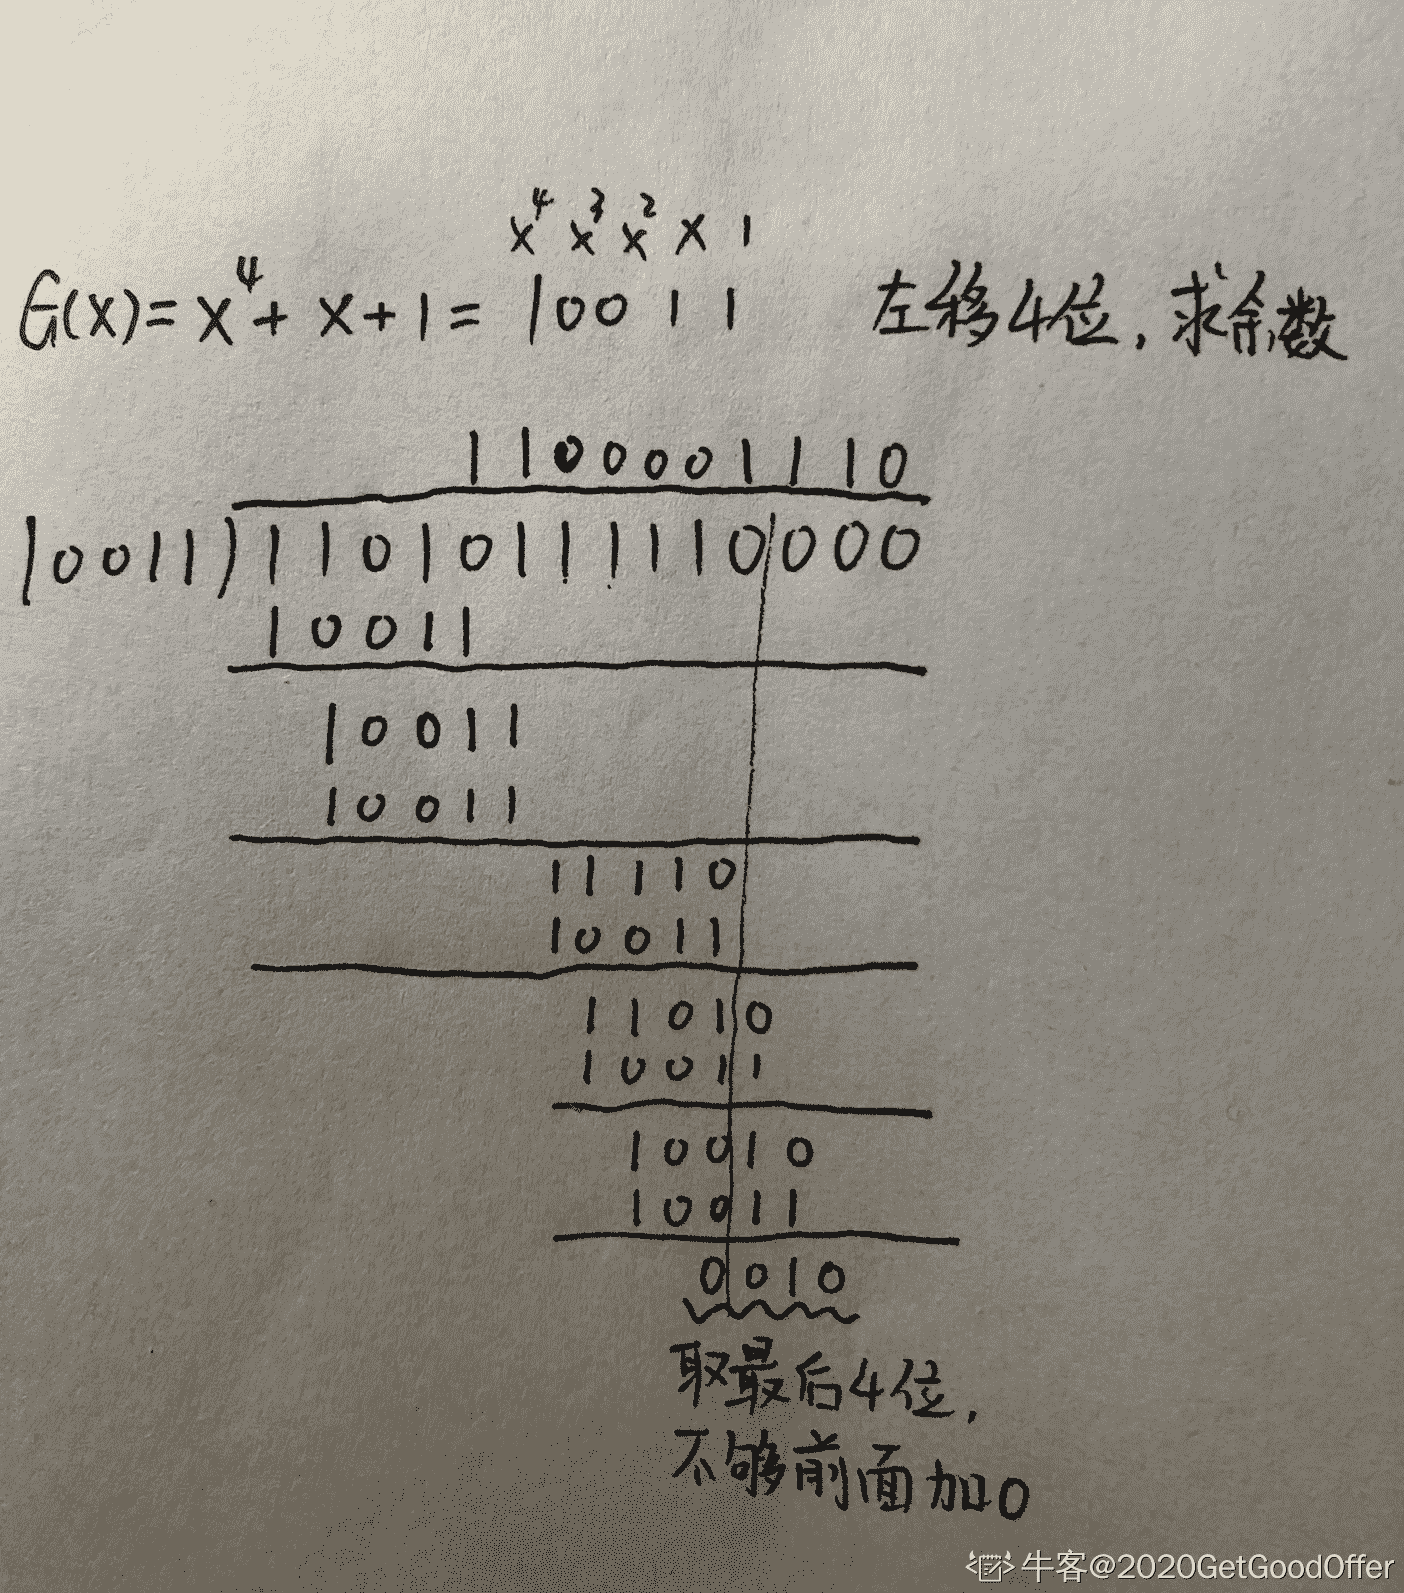 x⁴ x³ x² x 1
G(x)= x⁴+ x+1= 10011 左移4位,求余数
1100001110
10011)11010111110000
10011
10011
10011
11110
10011
11010
10011
10010
10011
0010
取最后4位,
不够前面加0
牛客@2020GetGoodOffer